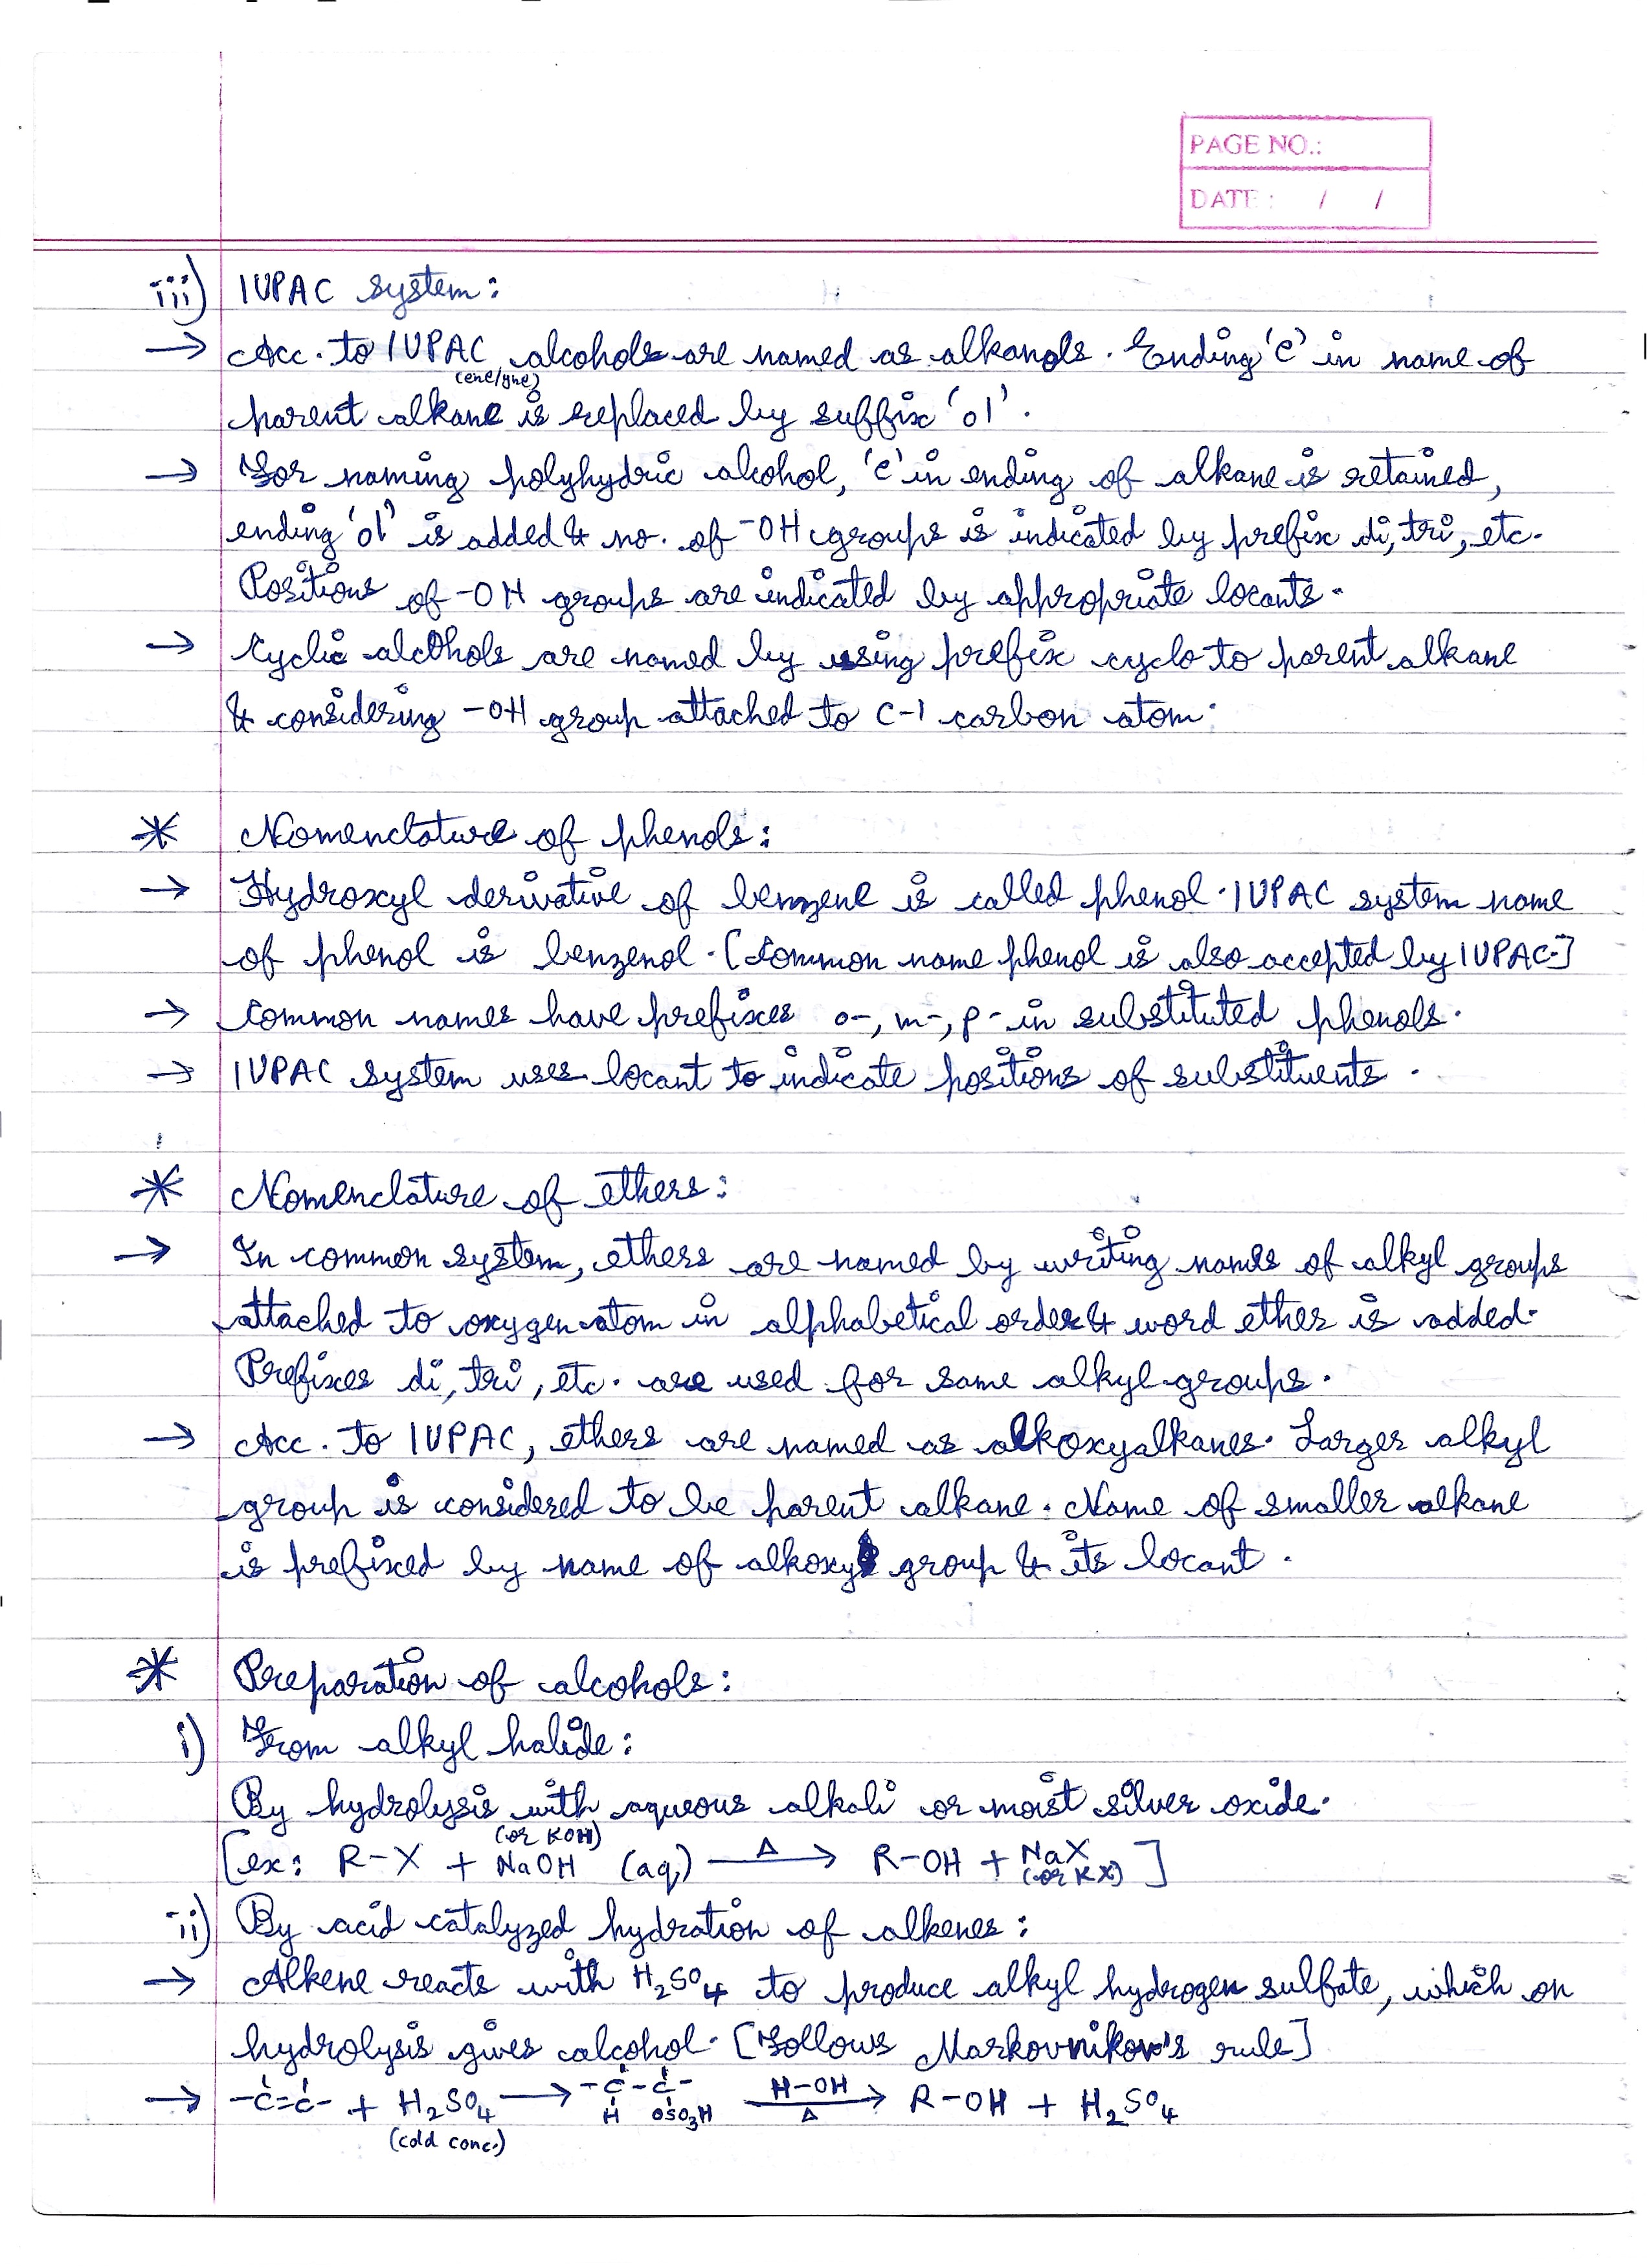 PAGE NO.:
DATE : / /
iii) IUPAC system:
→ Acc. to IUPAC alcohols are named as alkanols. Ending 'e' in name of
(ene/yne)
parent alkane is replaced by suffix 'ol'.
→ For naming polyhydric alcohol, 'e' in ending of alkane is retained,
ending 'ol' is added & no. of -OH groups is indicated by prefix di, tri, etc.
Positions of -OH groups are indicated by appropriate locants.
→ Cyclic alcohols are named by using prefix cyclo to parent alkane
& considering -OH group attached to C-1 carbon atom.
* Nomenclature of phenols:
→ Hydroxyl derivative of benzene is called phenol. IUPAC system name
of phenol is benzenol. [Common name phenol is also accepted by IUPAC.]
→ Common names have prefixes o-, m-, p- in substituted phenols.
→ IUPAC system uses locant to indicate positions of substituents.
* Nomenclature of ethers:
→ In common system, ethers are named by writing names of alkyl groups
attached to oxygen atom in alphabetical order & word ether is added.
Prefixes di, tri, etc. are used for same alkyl groups.
→ Acc. to IUPAC, ethers are named as alkoxyalkanes. Larger alkyl
group is considered to be parent alkane. Name of smaller alkane
is prefixed by name of alkoxy group & its locant.
* Preparation of alcohols:
i) From alkyl halide:
By hydrolysis with aqueous alkali or moist silver oxide.
(or KOH)
[ex: R-X + NaOH (aq) —Δ→ R-OH + NaX (or KX)]
ii) By acid catalyzed hydration of alkenes:
→ Alkene reacts with H₂SO₄ to produce alkyl hydrogen sulfate, which on
hydrolysis gives alcohol. [Follows Markovnikov's rule]
→ -C=C- + H₂SO₄ → -C-C- H-OH Δ → R-OH + H₂SO₄
(cold conc.) H OSO₃H